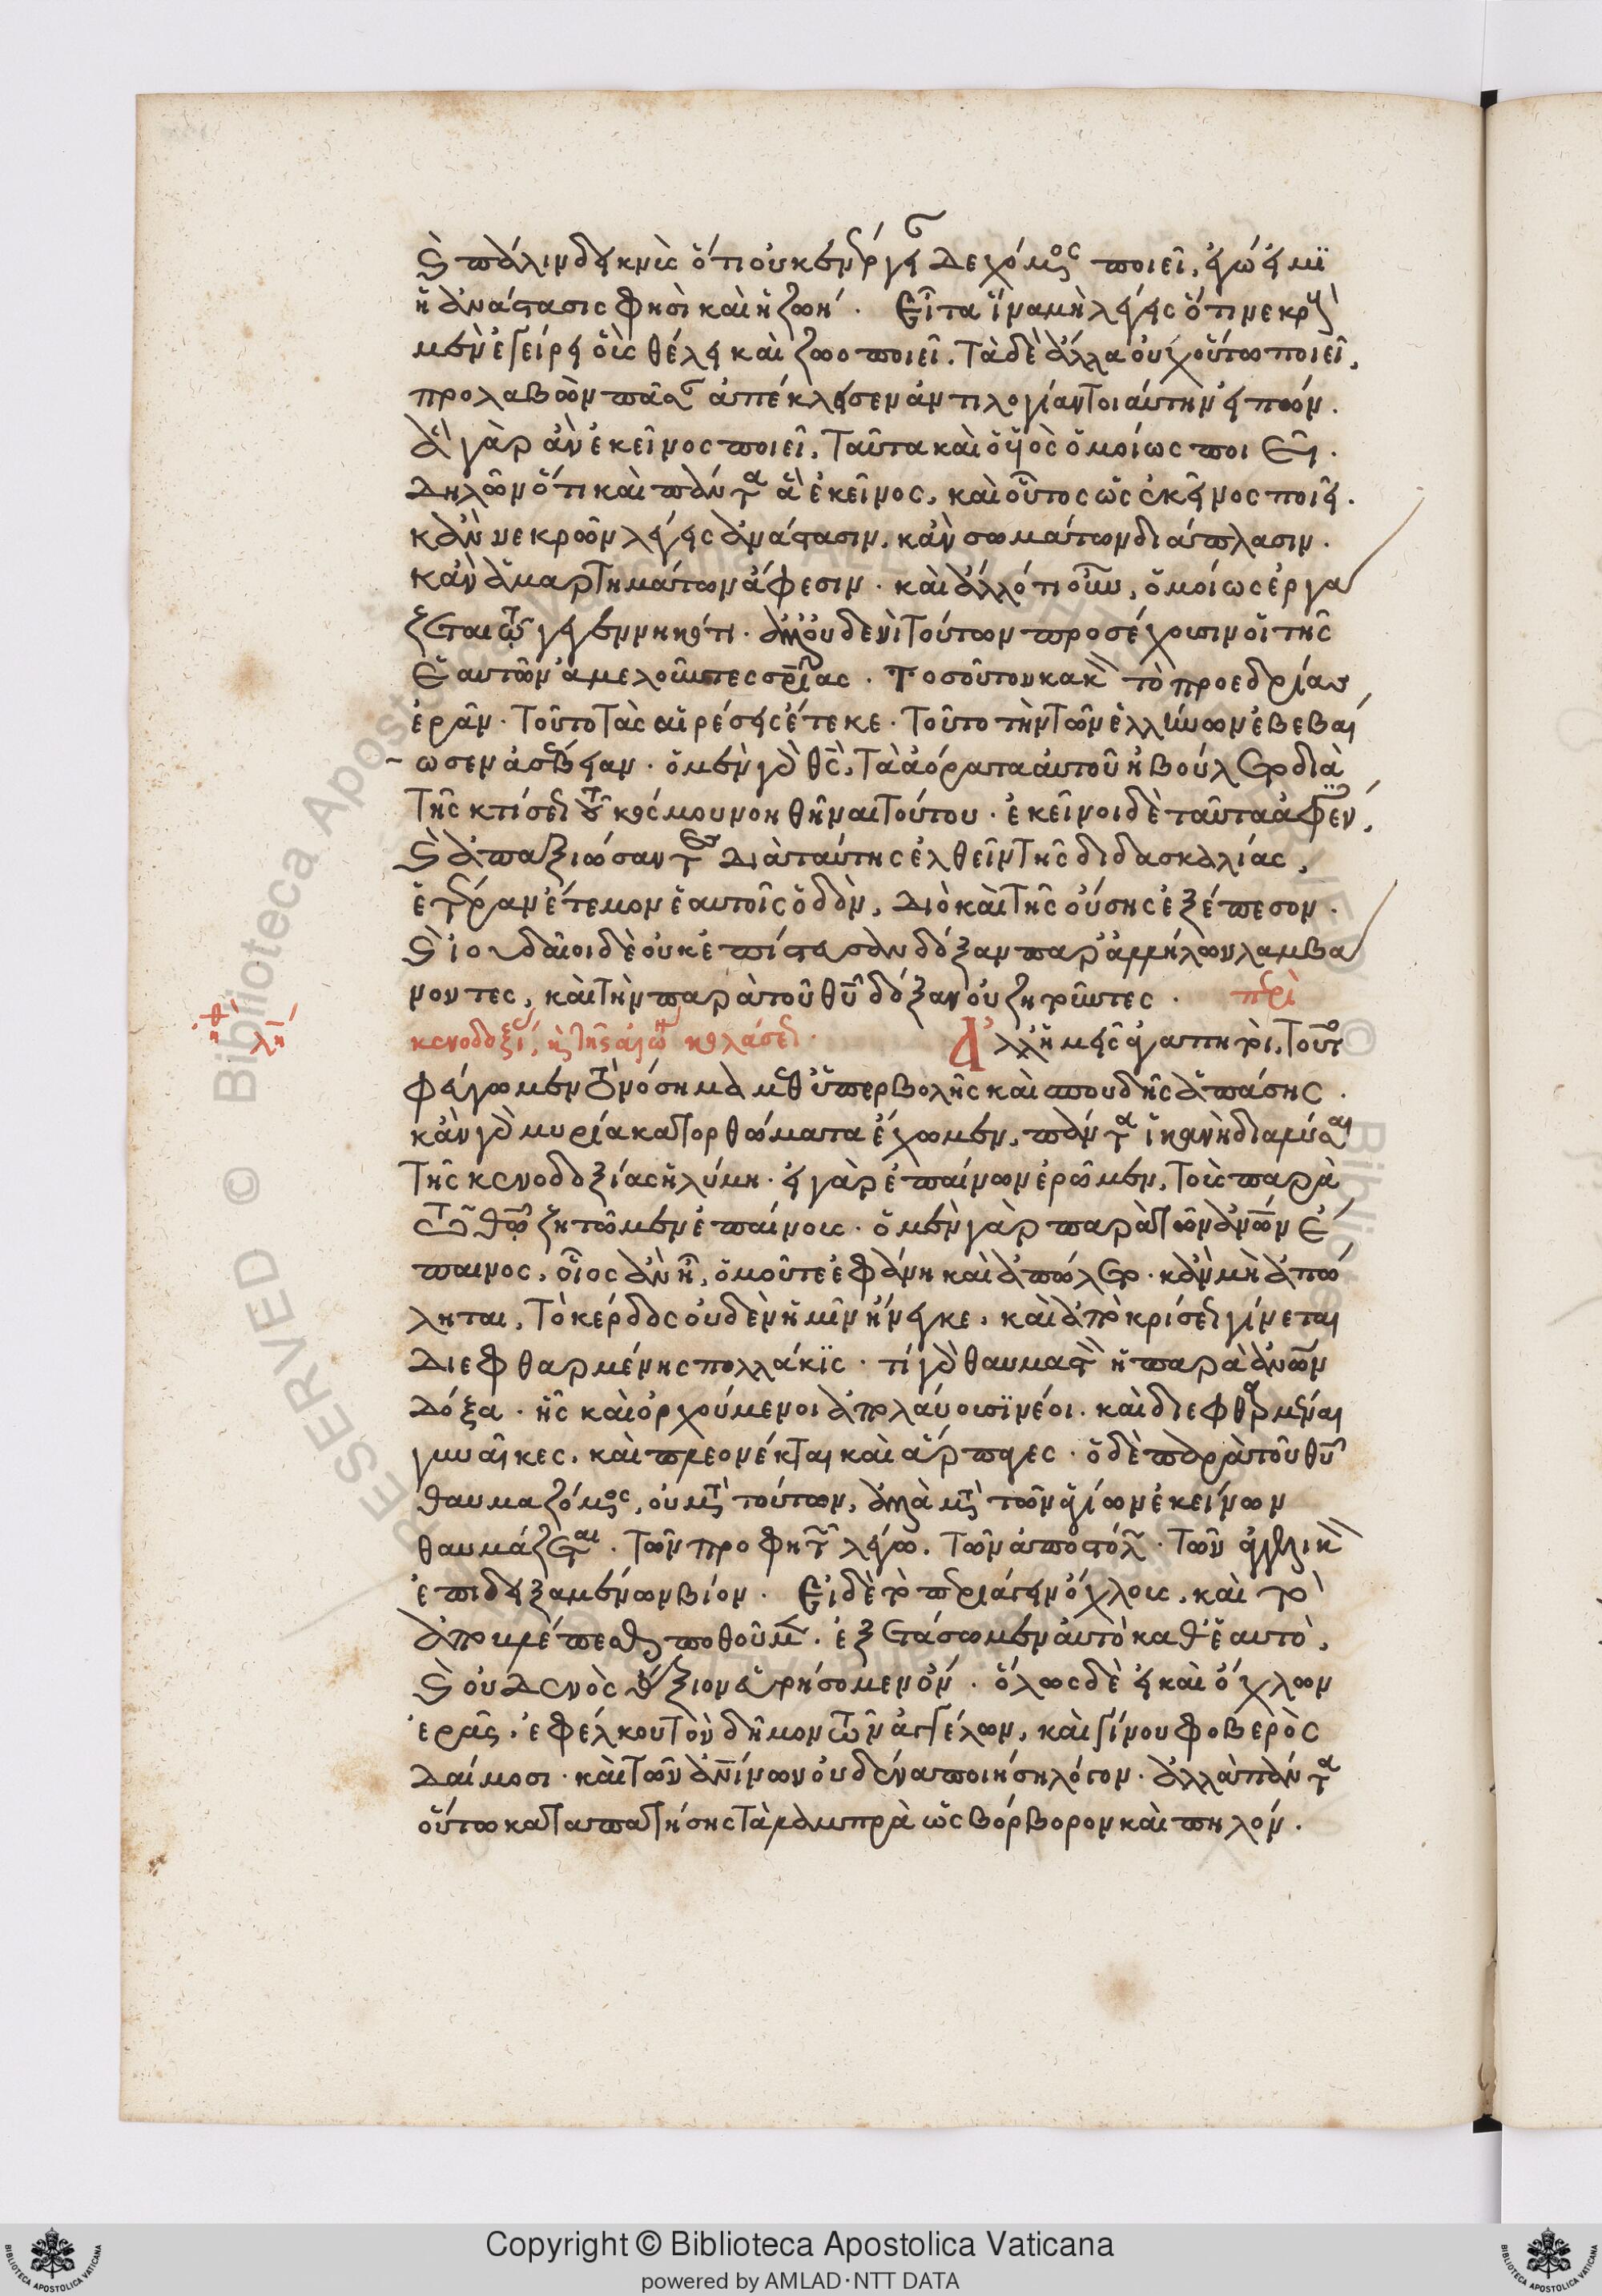 καὶ πάλιν δεικνὺς ὅτι οὐκ ἐνέργειαν δεχόμενος ποιεῖ, ἐγώ εἰμι
ἡ ἀνάστασις φησὶ καὶ ἡ ζωή. Εἶτα ἵνα μὴ λέγῃς ὅτι νεκροὺς
μὲν ἐγείρει οὓς θέλει καὶ ζωοποιεῖ. τὰ δὲ ἄλλα οὐχ οὕτω ποιεῖ,
προλαβὼν πᾶσαν ἀπέκλεισεν ἀντιλογίαν τοιαύτην εἰπών.
ἃ γὰρ ἂν ἐκεῖνος ποιεῖ, ταῦτα καὶ ὁ υἱὸς ὁμοίως ποιεῖ.
δηλῶν ὅτι καὶ πάντα ἃ ἐκεῖνος, καὶ οὗτος ὡς ἐκεῖνος ποιεῖ.
κἂν νεκρῶν λέγῃς ἀνάστασιν, κἂν σωμάτων διάπλασιν.
κἂν ἁμαρτημάτων ἄφεσιν. καὶ ἄλλό τι οὖν, ὁμοίως ἐργά
ζεται τῷ γεγεννηκότι. ἀλλ' οὐδενὶ τούτων προσέχουσιν οἱ τῆς
ἑαυτῶν ἀμελοῦντες σρίας. Τοσοῦτον κακὸν τὸ προεδρίας
ἐρᾶν. τοῦτο τὰς αἱρέσεις ἔτεκε. τοῦτο τὴν τῶν ἑλλήνων ἐβεβαί
ωσεν ἀσέβειαν. ὁ μὲν γὰρ θς, τὰ ἀόρατα αὐτοῦ ἠβούλετο διὰ
τῆς κτίσεως τοῦ κόσμου νοηθῆναι τούτου. ἐκεῖνοι δὲ ταῦτα ἀφέντες,
καὶ ἀπαξιώσαντες διὰ ταύτης ἐλθεῖν τῆς διδασκαλίας,
ἑτέραν ἔτεμον ἑαυτοῖς ὁδὸν, διὸ καὶ τῆς οὔσης ἐξέπεσον.
καὶ ἰουδαῖοι δὲ οὐκ ἐπίστευσαν δόξαν παρ' ἀλλήλων λαμβά
νοντες, καὶ τὴν παρὰ τοῦ θυ δόξαν οὐ ζητοῦντες. περὶ
κενοδοξίας, καὶ τῆς αἰωνίου κολάσεως.
Ἀλλ' ἡμεῖς ἀγαπητοὶ, τοῦτο
φεύγωμεν τὸ νόσημα μεθ' ὑπερβολῆς καὶ σπουδῆς ἁπάσης.
κἂν γὰρ μυρία κατορθώματα ἔχωμεν, πάντα ἱκανὴ διαλῦσαι
τῆς κενοδοξίας ἡ λύμη. εἰ γὰρ ἐπαίνων ἐρῶμεν, τοὺς παρὰ
τοῦ θεοῦ ζητῶμεν ἐπαίνους. ὁ μὲν γὰρ παρὰ τῶν ἀνων ἔ
παινος, οἷος ἂν ᾖ, ὁμοῦ τε ἐφάνη καὶ ἀπώλετο. κἂν μὴ ἀπό
ληται, τὸ κέρδος οὐδὲν ἡμῖν ἤνεγκε, καὶ ἀπὸ κρίσεως γίνεται
διεφθαρμένης πολλάκις. τί γὰρ θαυμαστὸν ἡ παρὰ ἀνων
δόξα. ἧς καὶ ὀρχούμενοι ἀπολαύουσι νέοι. καὶ διεφθαρμέναι
γυναῖκες, καὶ πλεονέκται καὶ ἅρπαγες. ὁ δὲ παρὰ τοῦ θυ
θαυμαζόμενος, οὐ μετὰ τούτων, ἀλλὰ μετὰ τῶν ἁγίων ἐκείνων
θαυμάζεται. τῶν προφητῶν λέγω. τῶν ἀποστόλων. τῶν ἀγγελικὸν
ἐπιδειξαμένων βίον. Εἰ δὲ τὸ περιάγειν ὄχλους, καὶ τὸ
ἀποβλέπεσθαι ποθοῦμεν, ἐξετάσωμεν αὐτὸ καθ' ἑαυτὸ,
καὶ οὐδενὸς ἄξιον εὑρήσομεν ὄν. ὅλως δὲ εἰ καὶ ὄχλων
ἐρᾷς, ἐφέλκου τὸν δῆμον τῶν ἀγγέλων, καὶ γίνου φοβερὸς
δαίμοσι. καὶ τῶν ἀνινων οὐδένα ποιήσῃ λόγον. ἀλλὰ πάντα
οὕτω καταπατήσῃς τὰ λαμπρὰ ὡς βόρβορον καὶ πηλόν.